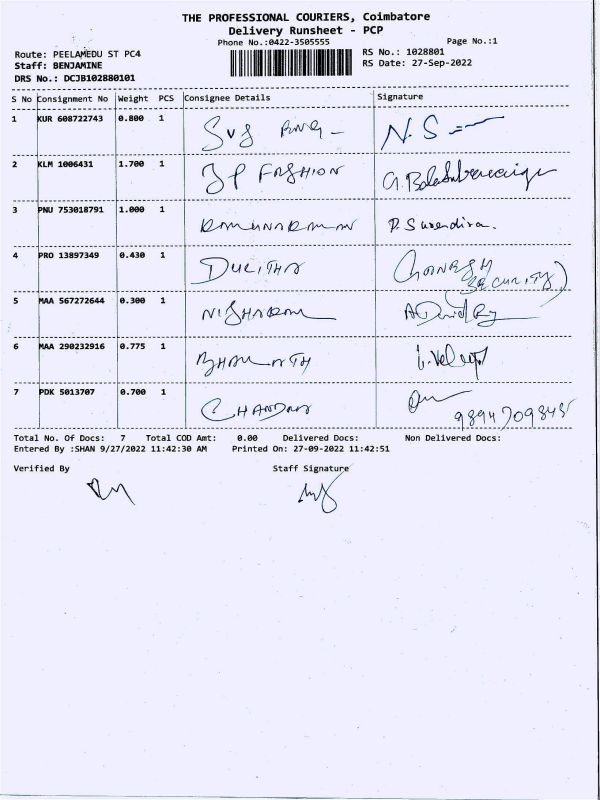 THE PROFESSIONAL COURIERS, Coimbatore
Delivery Runsheet - PCP
Phone No.:0422-3505555
Page No.:1
Route: PEELAMEDU ST PC4
RS No.: 1028801
Staff: BENJAMINE
RS Date: 27-Sep-2022
DRS No.: DCJB102880101
S No Consignment No Weight PCS Consignee Details Signature
1 KUR 608722743 0.800 1 N. S
2 KLM 1006431 1.700 1 JP FASHION
3 PNU 753018791 1.000 1 P. Surendira.
4 PRO 13897349 0.430 1 (Security)
5 MAA 567272644 0.300 1
6 MAA 290232916 0.775 1
7 PDK 5013707 0.700 1 CHANDRA
9894709845
Total No. Of Docs: 7 Total COD Amt: 0.00 Delivered Docs: Non Delivered Docs:
Entered By :SHAN 9/27/2022 11:42:30 AM Printed On: 27-09-2022 11:42:51
Verified By Staff Signature